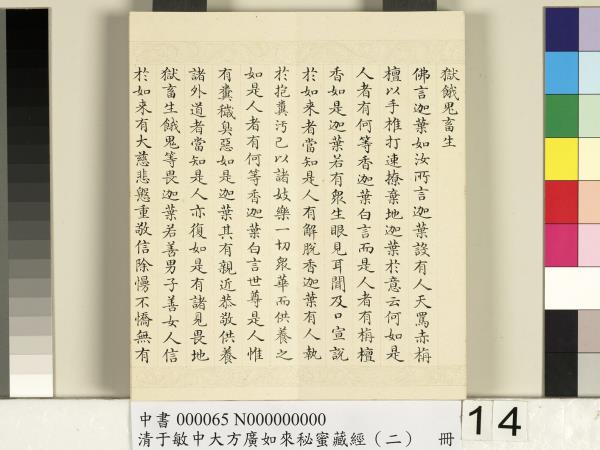 獄餓鬼畜生
佛言迦葉如汝所言迦葉設有人天罵赤栴
檀以手椎打速撩棄地迦葉於意云何如是
人者有何等香迦葉白言而是人者有栴檀
香如是迦葉若有衆生眼見耳聞及口宣說
於如來者當知是人有解脫香迦葉有人執
於抱糞汚己以諸妓樂一切衆華而供養之
如是人者有何等香迦葉白言世尊是人惟
有糞穢臭惡如是迦葉其有親近恭敬供養
諸外道者當知是人亦復如是有諸見畏地
獄畜生餓鬼等畏迦葉若善男子善女人信
於如來有大慈悲慇重敬信除慢不憍無有
中書 000065 N000000000
清于敏中大方廣如來秘蜜藏經（二） 冊
14